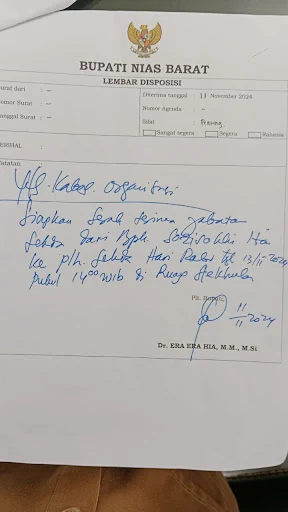 BUPATI NIAS BARAT
LEMBAR DISPOSISI
Surat dari : –
Nomor Surat : –
Tanggal Surat : –
Diterima tanggal : 11 November 2024
Nomor Agenda : –
Sifat : Penting
Sangat segera Segera Rahasia
PERIHAL :
Catatan
Yth. Kabag. Organisasi
Siapkan Serah terima jabatan
Sekda dari Bpk. Hia
ke Plh. Sekda Hari Rabu tgl 13/11 2024
Pukul 14.00 WIB di Ruang Sekda
Plt. Bupati,
11/11 2024
Dr. ERA ERA HIA, M.M., M.Si